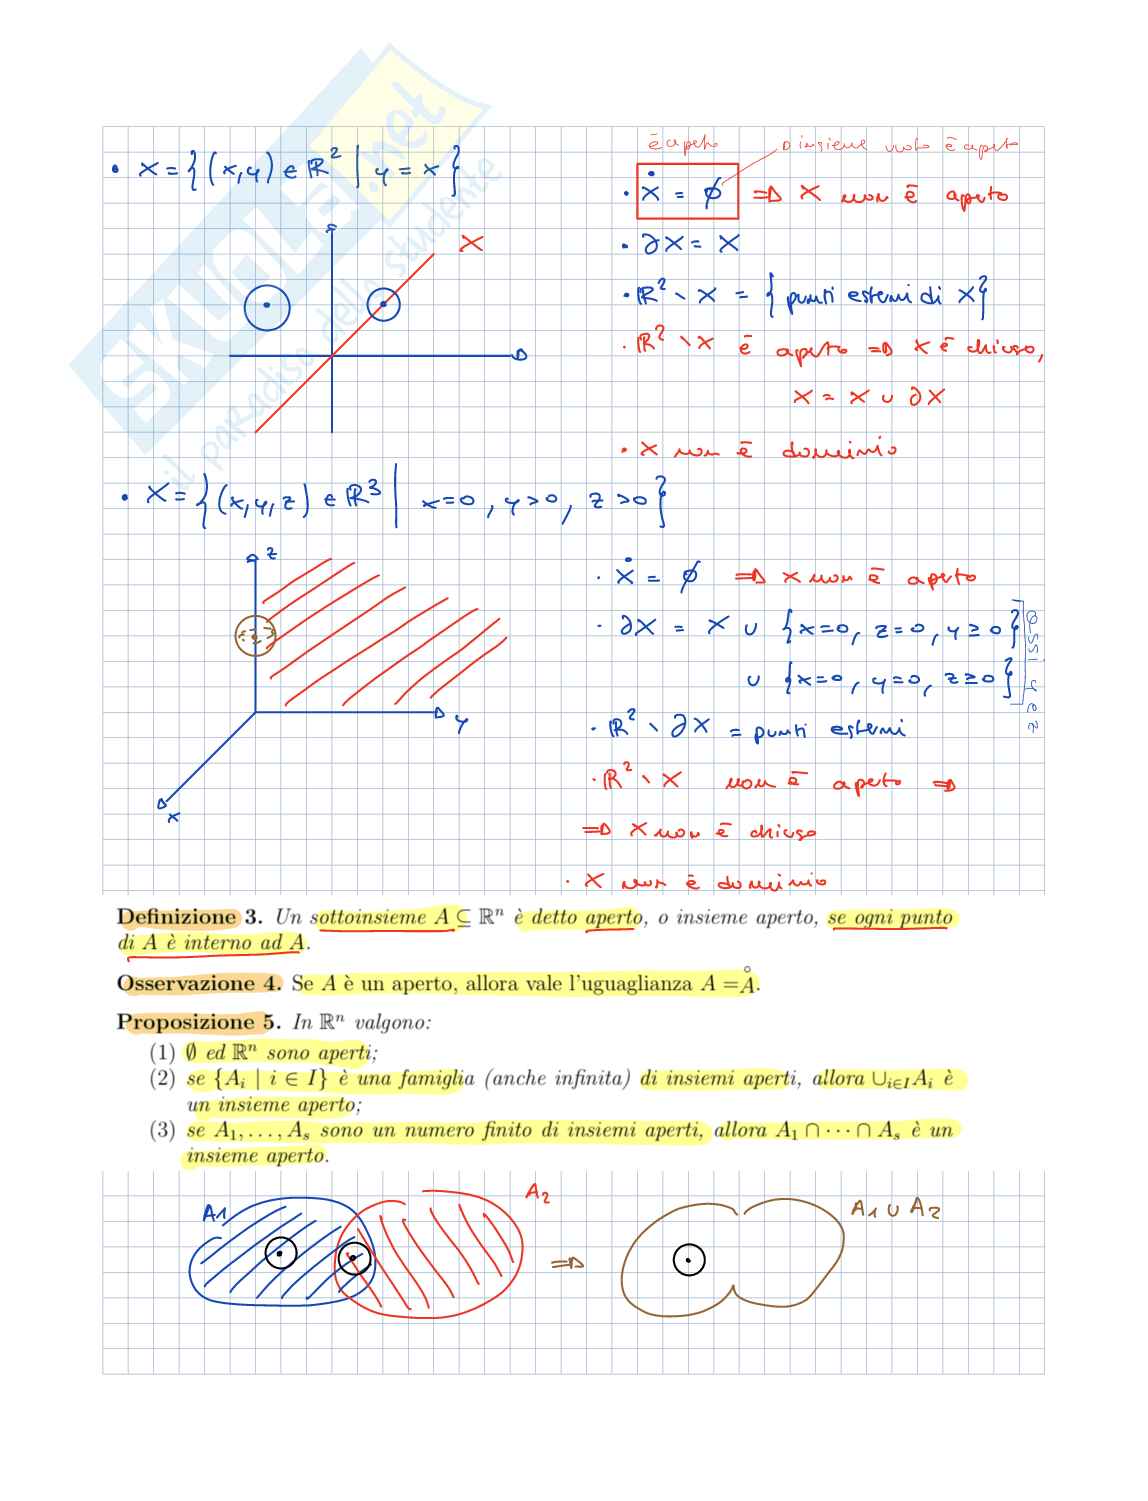 SKUOLA.net
il paradiso dello studente
• X = {(x,y) ∈ ℝ² | y = x}
X
è aperto
insieme vuoto è aperto
• Ẋ = ∅ ⇒ X non è aperto
• ∂X = X
• ℝ² \ X = {punti esterni di X}
• ℝ² \ X è aperto ⇒ X è chiuso,
X = X ∪ ∂X
• X non è dominio
• X = {(x,y,z) ∈ ℝ³ | x=0, y>0, z>0}
z
y
x
• Ẋ = ∅ ⇒ X non è aperto
• ∂X = X ∪ {x=0, z=0, y≥0}
∪ {x=0, y=0, z≥0}
assi y e z
• ℝ² \ ∂X = punti esterni
• ℝ² \ X non è aperto ⇒
⇒ X non è chiuso
• X non è dominio
Definizione 3. Un sottoinsieme A ⊆ ℝⁿ è detto aperto, o insieme aperto, se ogni punto
di A è interno ad A.
Osservazione 4. Se A è un aperto, allora vale l'uguaglianza A = Å.
Proposizione 5. In ℝⁿ valgono:
(1) ∅ ed ℝⁿ sono aperti;
(2) se {Aᵢ | i ∈ I} è una famiglia (anche infinita) di insiemi aperti, allora ∪_{i∈I} Aᵢ è
un insieme aperto;
(3) se A₁, . . . , Aₛ sono un numero finito di insiemi aperti, allora A₁ ∩ · · · ∩ Aₛ è un
insieme aperto.
A1
A2
⇒
A1 ∪ A2